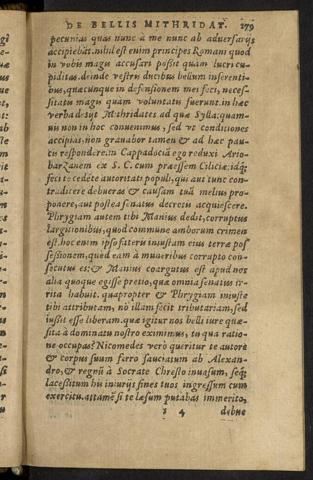 DE BELLIS MITHRIDAT. 179
pecunias quas nunc à me nunc ab aduersarijs
accipiebāt. nihil est enim principes Romani quod
in vobis magis accusari possit quàm lucri cu-
piditas. deinde vestris ducibus bellum inferenti-
bus, quæcunque in defensionem mei feci, neces-
sitatu magis quàm voluntatis fuerunt. in hæc
verba desijt Mithridates ad quæ Sylla: quam-
uis non in hoc conuenimus, sed vt conditiones
accipias, non grauabor tamen & ad hæc pau-
tis respōdere. in Cappadociā ego reduxi Ario-
barzanem ex S. C. cum præessem Ciliciæ. idq́;
feci te cedēte autoritati populi, qui aut tunc con-
tradicere debueras & causam tuā melius pro-
ponere, aut postea senatus decretis acquiescere.
Phrygiam autem tibi Manius dedit, corruptus
largitionibus, quod commune amborum crimen
est. hoc enim ipso fateris iniustam eius terræ pos
sessionem, quòd eam à muneribus corrupto con-
secutus es: & Manius coargutus est apud nos
alia quoque egisse pretio, quæ omnia senatus ir-
rita habuit. quapropter & Phrygiam iniuste
tibi attributam, nō illam fecit tributariam, sed
iußit esse liberam. quæ igitur nos belli iure quæ-
sita à dominatu nostro eximimus, tu qua ratio-
ne occupas? Nicomedes verò queritur te autore
& corpus suum ferro sauciatum ab Alexan-
dro, & regnū à Socrate Chresto inuasum, seq́;
laceßitum his iniurijs fines tuos ingressum cum
exercitu. attamē si te læsum putabas immeritò,
3 4 debue